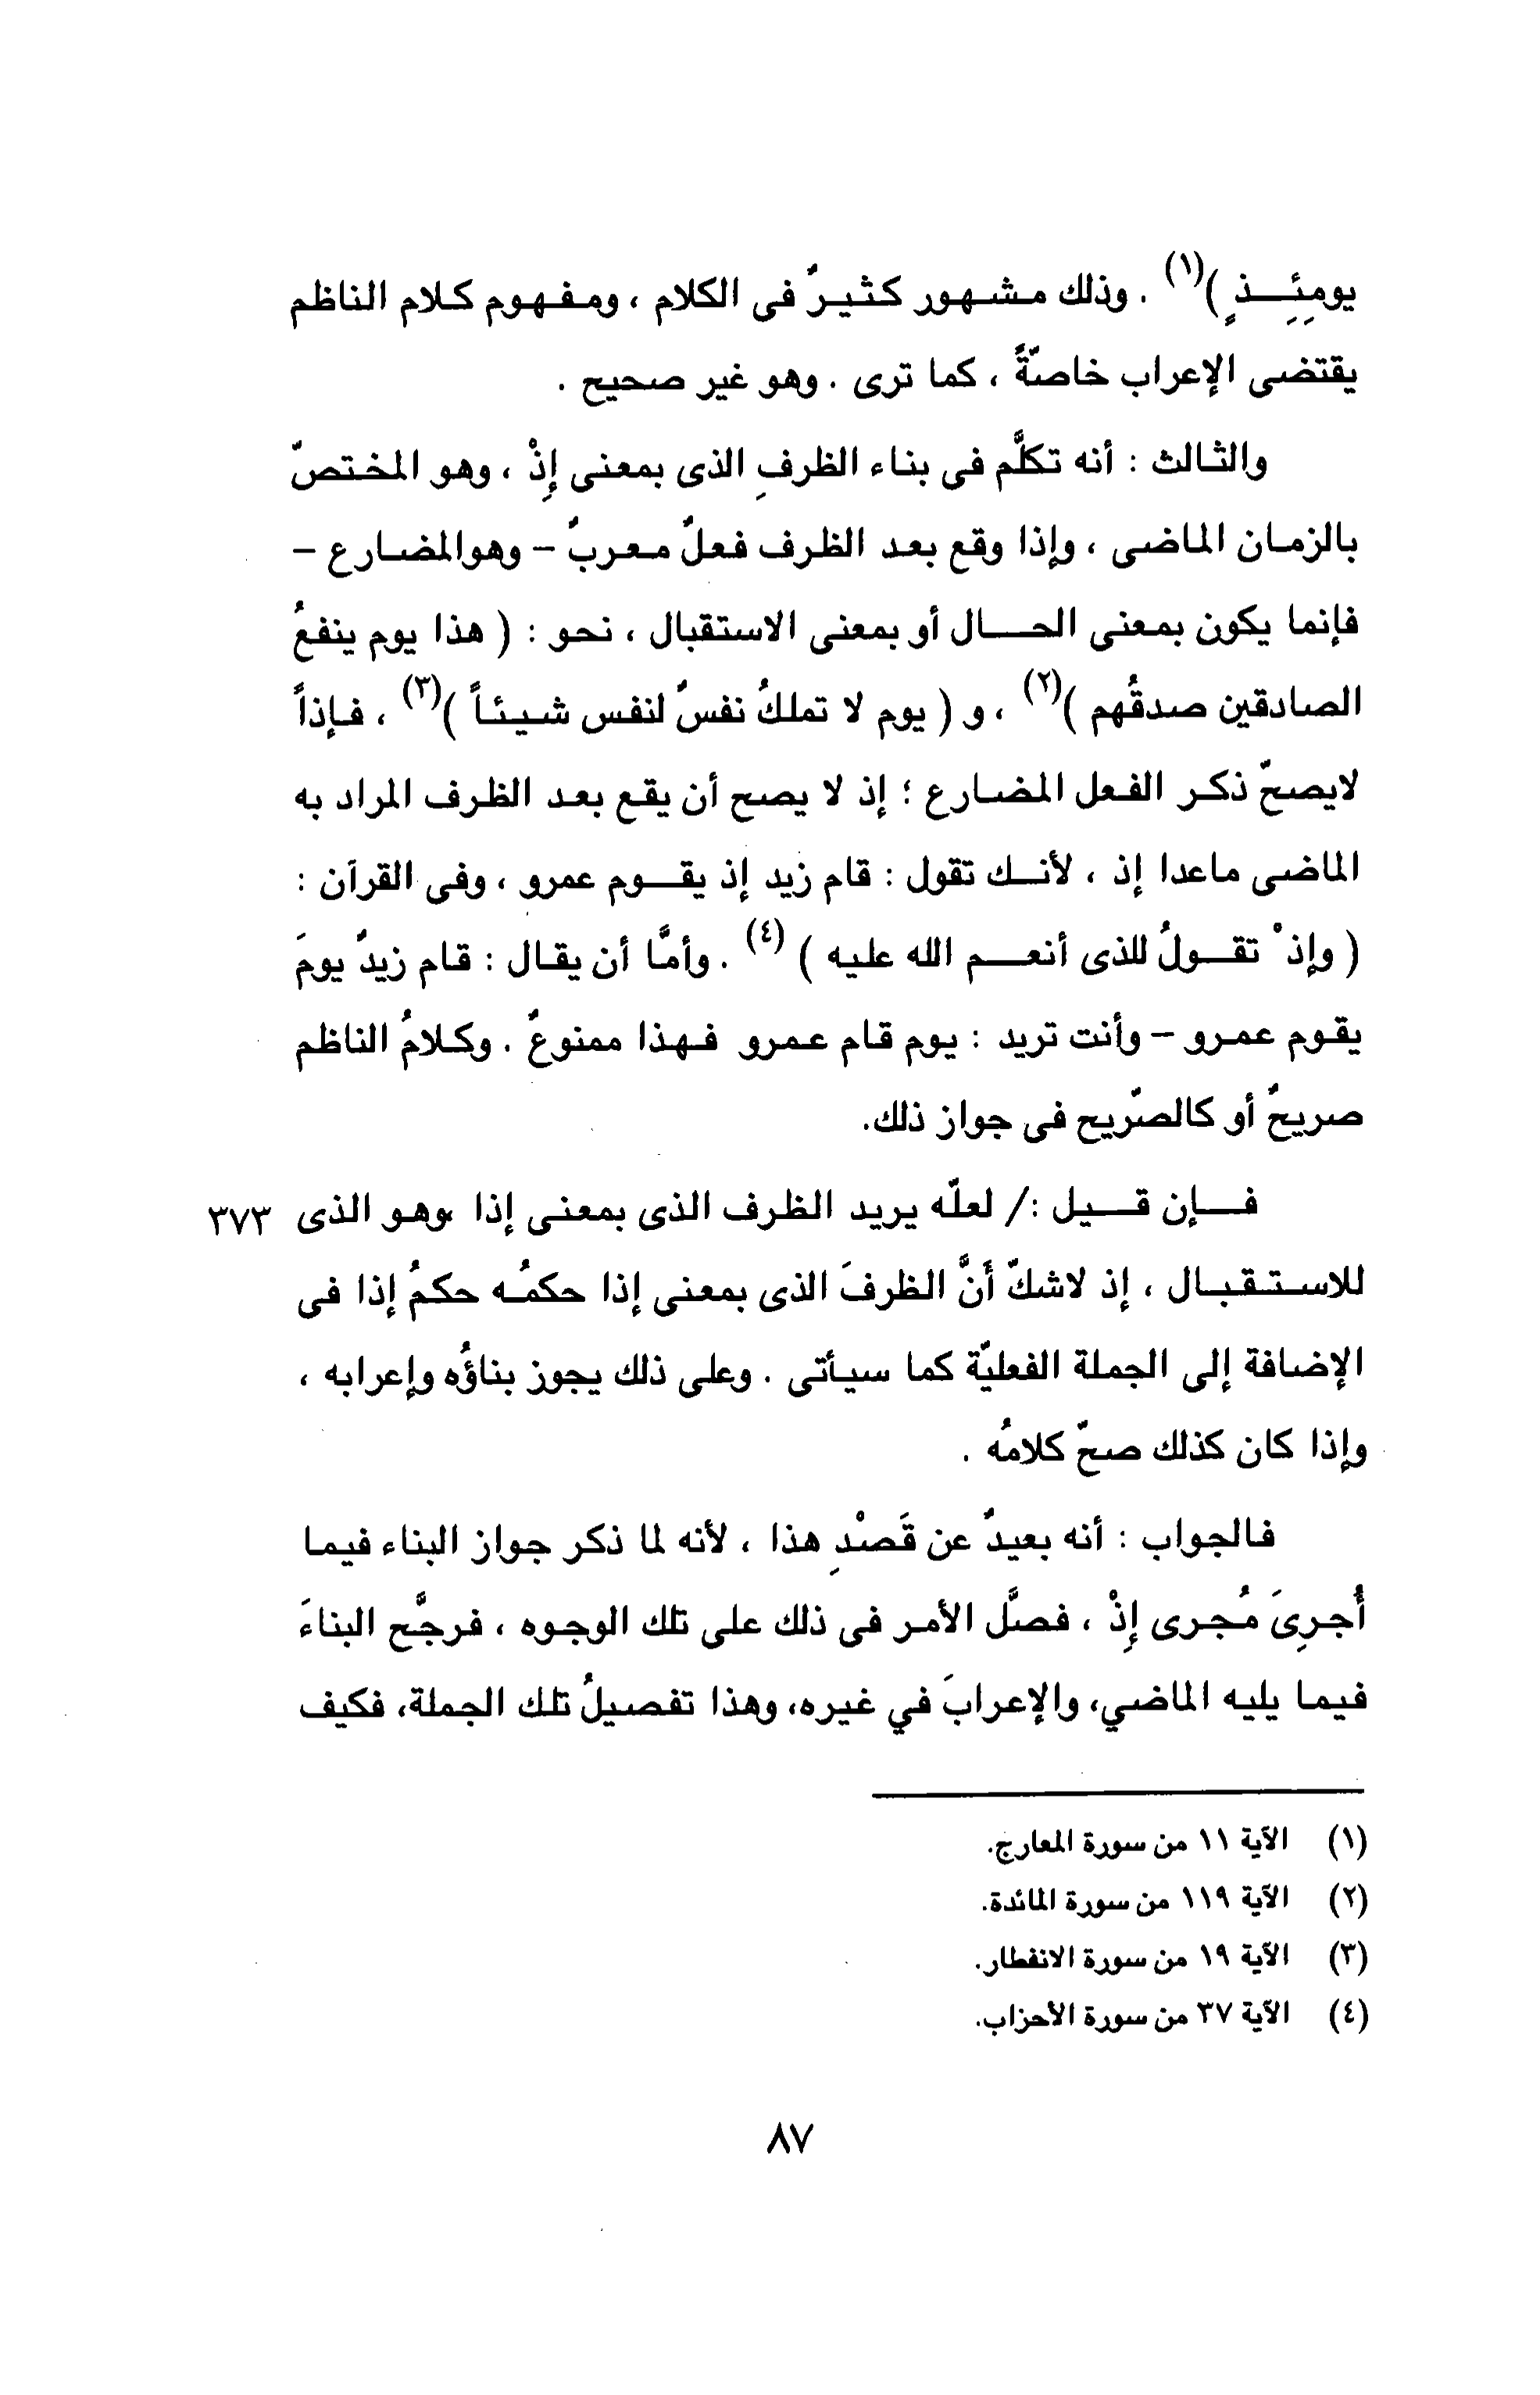 يومِئِـــذٍ )(١) . وذلك مشهور كثيرٌ فى الكلام ، ومفهوم كلام الناظم
يقتضى الإعراب خاصّةً ، كما ترى . وهو غير صحيح .
والثالث : أنه تكلَّم فى بناء الظرفِ الذى بمعنى إِذْ ، وهو المختصّ
بالزمان الماضى ، وإذا وقع بعد الظرف فعلٌ معربٌ – وهوالمضارع –
فإنما يكون بمعنى الحـــال أو بمعنى الاستقبال ، نحو : ( هذا يوم ينفعُ
الصادقين صدقُهم )(٢) ، و ( يوم لا تملكُ نفسٌ لنفس شيئاً )(٣) ، فإذاً
لايصحّ ذكر الفعل المضارع ؛ إذ لا يصح أن يقع بعد الظرف المراد به
الماضى ماعدا إذ ، لأنـــك تقول : قام زيد إذ يقـــوم عمرو ، وفى القرآن :
( وإذْ تقـــولُ للذى أنعـــم الله عليه ) (٤) . وأمَّا أن يقال : قام زيدٌ يومَ
يقوم عمرو – وأنت تريد : يوم قام عمرو فهذا ممنوعٌ . وكلامُ الناظم
صريحٌ أو كالصّريح فى جواز ذلك.
فـــإن قـــيل :/ لعلّه يريد الظرف الذى بمعنى إذا ،وهو الذى ٣٧٣
للاستقبال ، إذ لاشكّ أَنَّ الظرفَ الذى بمعنى إذا حكمُه حكمُ إذا فى
الإضافة إلى الجملة الفعليّة كما سيأتى . وعلى ذلك يجوز بناؤُه وإعرابه ،
وإذا كان كذلك صحّ كلامُه .
فالجواب : أنه بعيدٌ عن قَصْدِ هذا ، لأنه لما ذكر جواز البناء فيما
أُجرِىَ مُجرى إِذْ ، فصَّل الأمر فى ذلك على تلك الوجوه ، فرجَّح البناءَ
فيما يليه الماضي، والإعرابَ في غيره، وهذا تفصيلُ تلك الجملة، فكيف
(١) الآية ١١ من سورة المعارج.
(٢) الآية ١١٩ من سورة المائدة.
(٣) الآية ١٩ من سورة الانفطار.
(٤) الآية ٣٧ من سورة الأحزاب.
٨٧